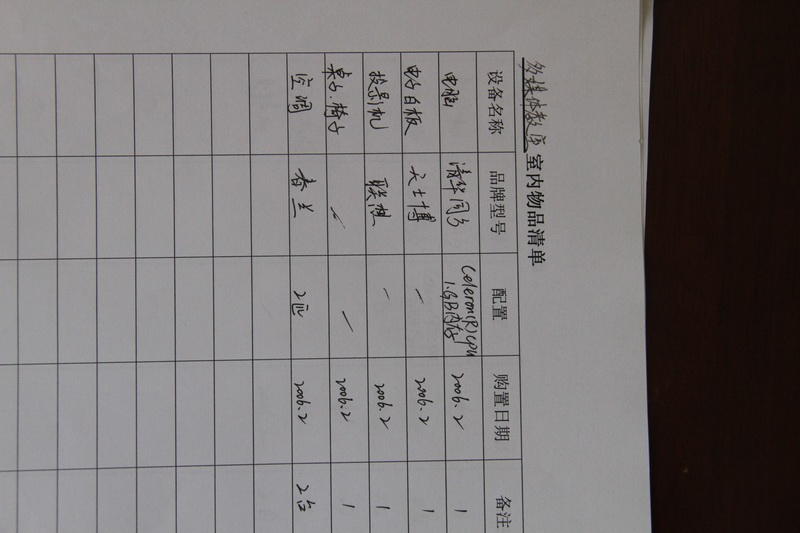 多媒体教室 室内物品清单
设备名称 品牌型号 配置 购置日期 备注
电脑 清华同方 Celeron(R)CPU 1.GB内存 2006.2 1
电子白板 天士博 — 2006.2 1
投影机 联想 — 2006.2 1
桌子.椅子 — — 2006.2 1
空调 春兰 2匹 2006.2 2台